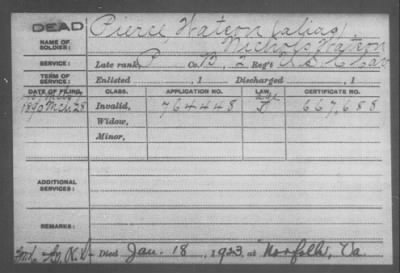 DEAD
Pierce Watson (alias)
NAME OF SOLDIER: Nichols Watson
SERVICE: Late rank, P Co. B, 2 Reg't U S C Cav
TERM OF SERVICE: Enlisted , 1 Discharged , 1
DATE OF FILING. CLASS. APPLICATION NO. LAW. CERTIFICATE NO.
1890 Mch 28 Invalid, 764448 667,688
Widow,
Minor,
ADDITIONAL SERVICES:
REMARKS:
Died Jan. 18, 1923 at Norfolk, Va.